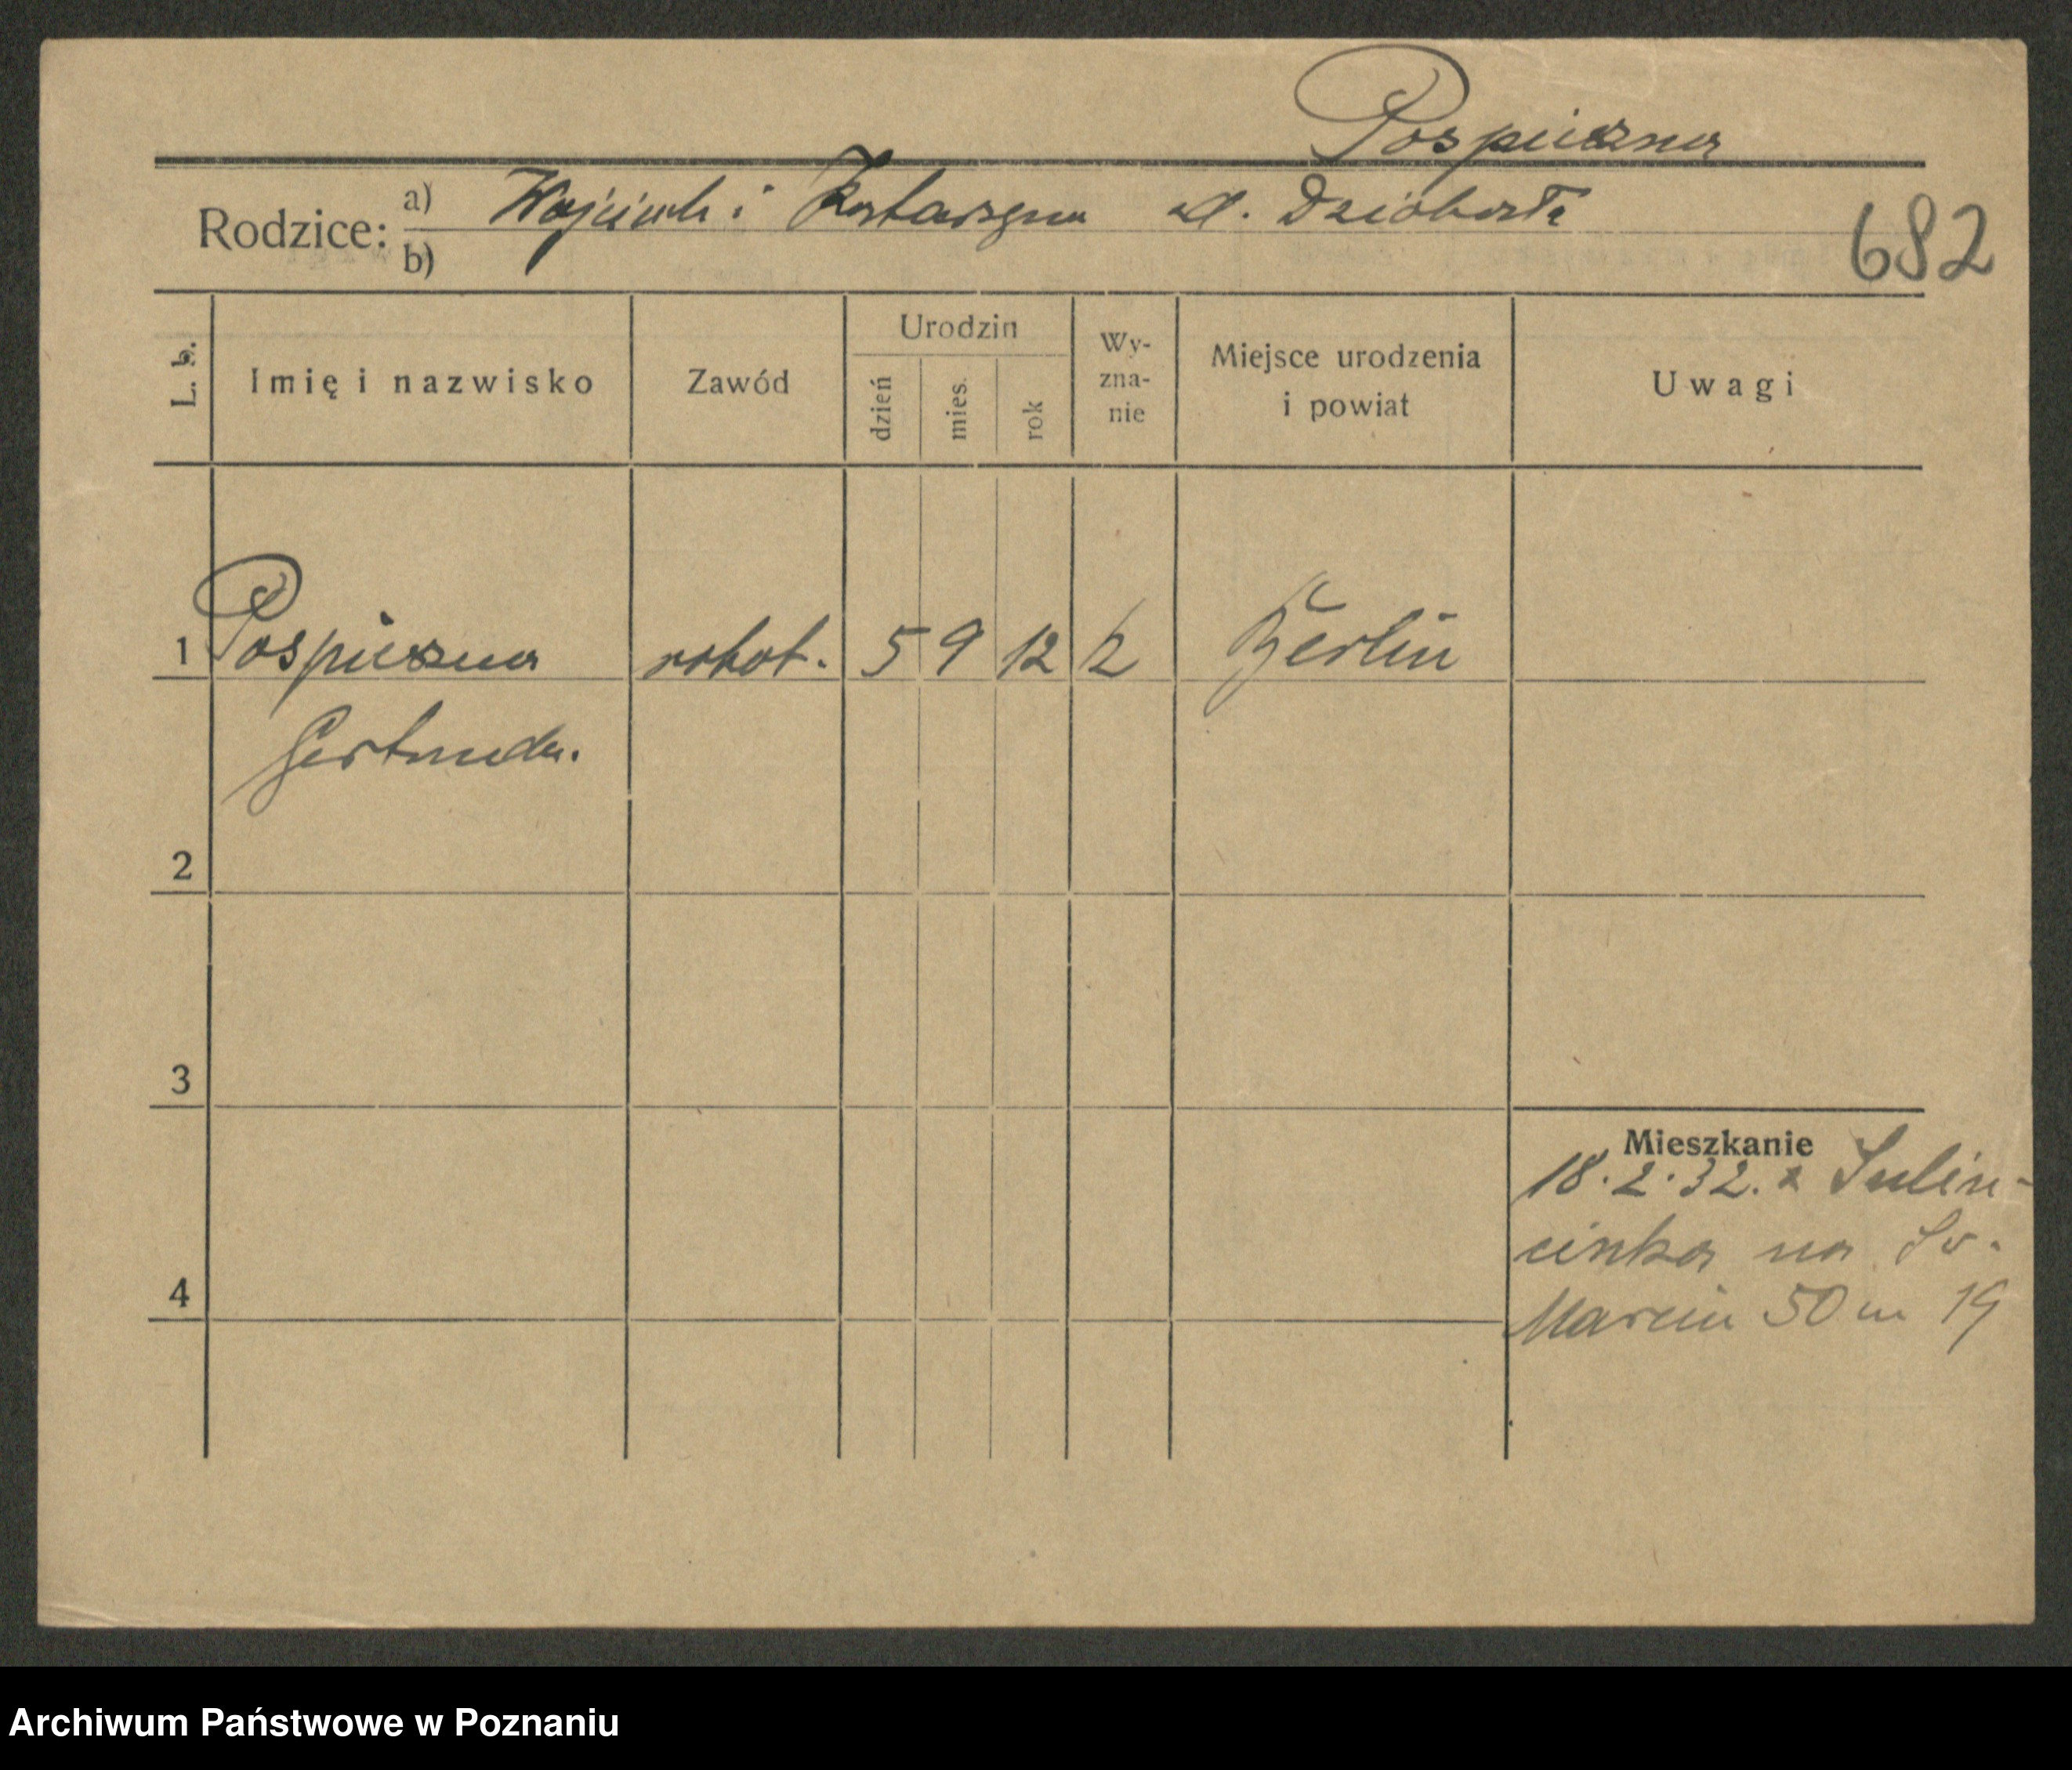 Pospieszna
Rodzice: a) Wojciech i Katarzyna
b)
682
L. b.
Imię i nazwisko
Zawód
Urodzin
dzień
mies.
rok
Wy-
zna-
nie
Miejsce urodzenia
i powiat
Uwagi
1 Pospieszna robot. 5 9 12 Berlin
Gertruda.
2
3
4
Mieszkanie
18.2.32. z Sulin-
cinka na Sw.
Marcin 50 m 19
Archiwum Państwowe w Poznaniu